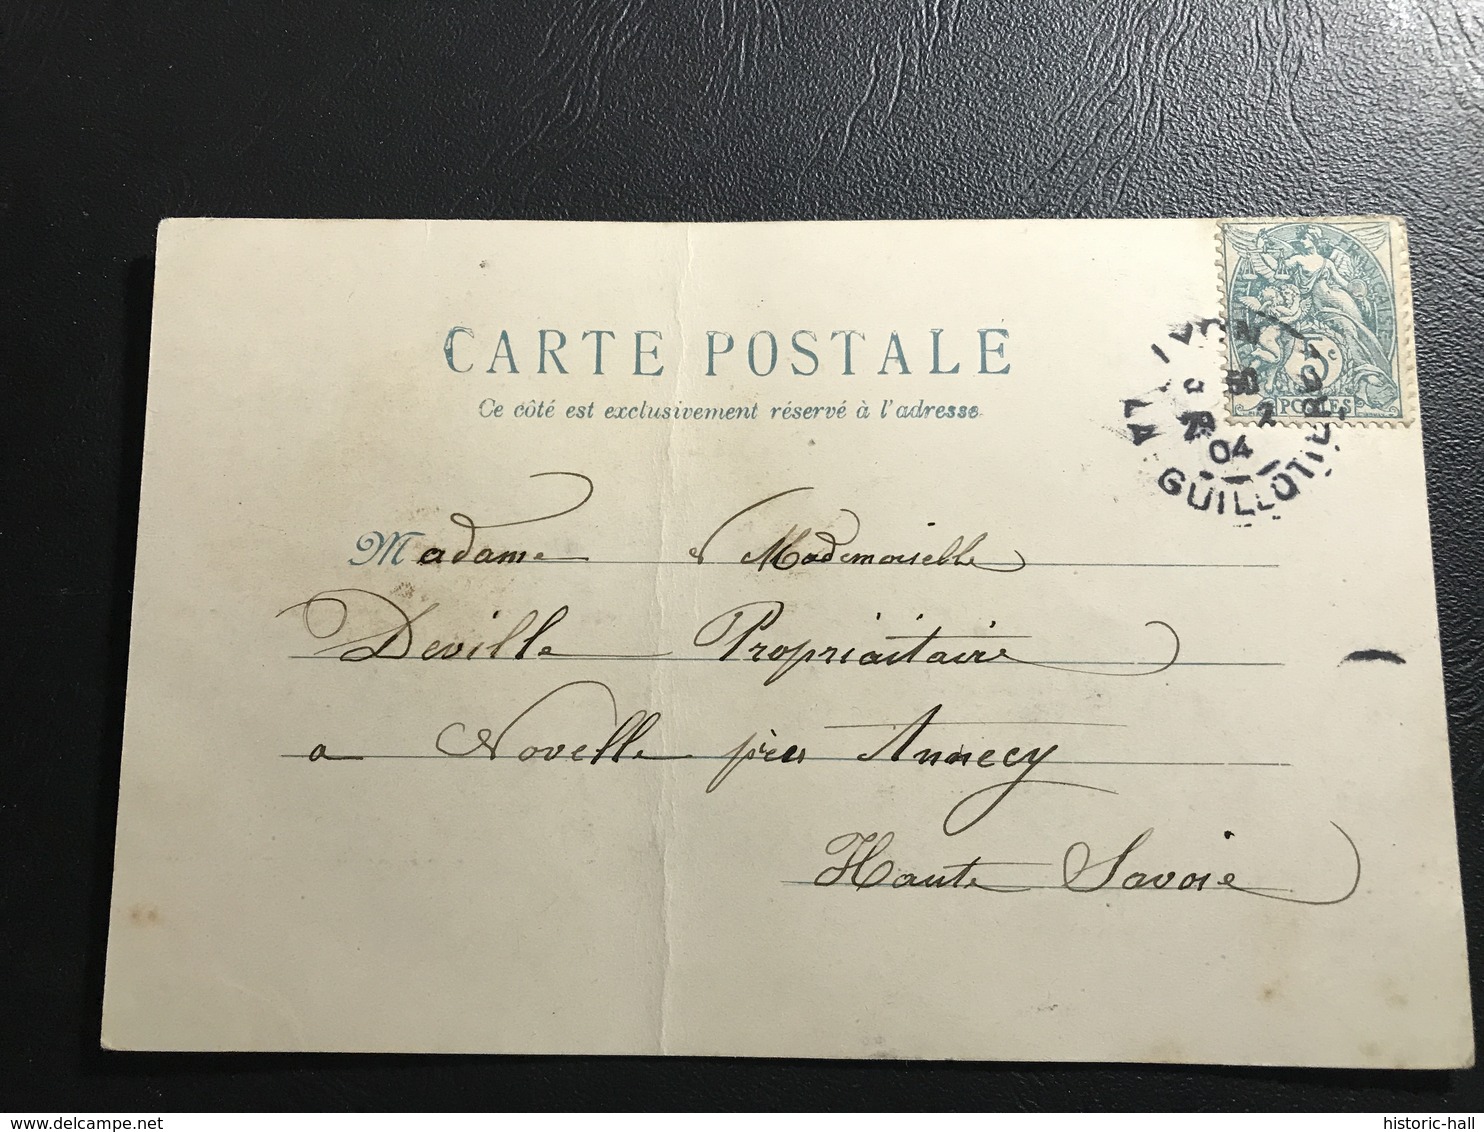 CARTE POSTALE
Ce côté est exclusivement réservé à l'adresse
RÉPUBLIQUE FRANÇAISE
5c
POSTES
LYON
50
29 2
04
LA GUILLOTIÈRE
Madame e Mademoiselle
Deville Propriaitaire
a Novelle près Annecy
Haute Savoie
delcampe.net
historic-hall